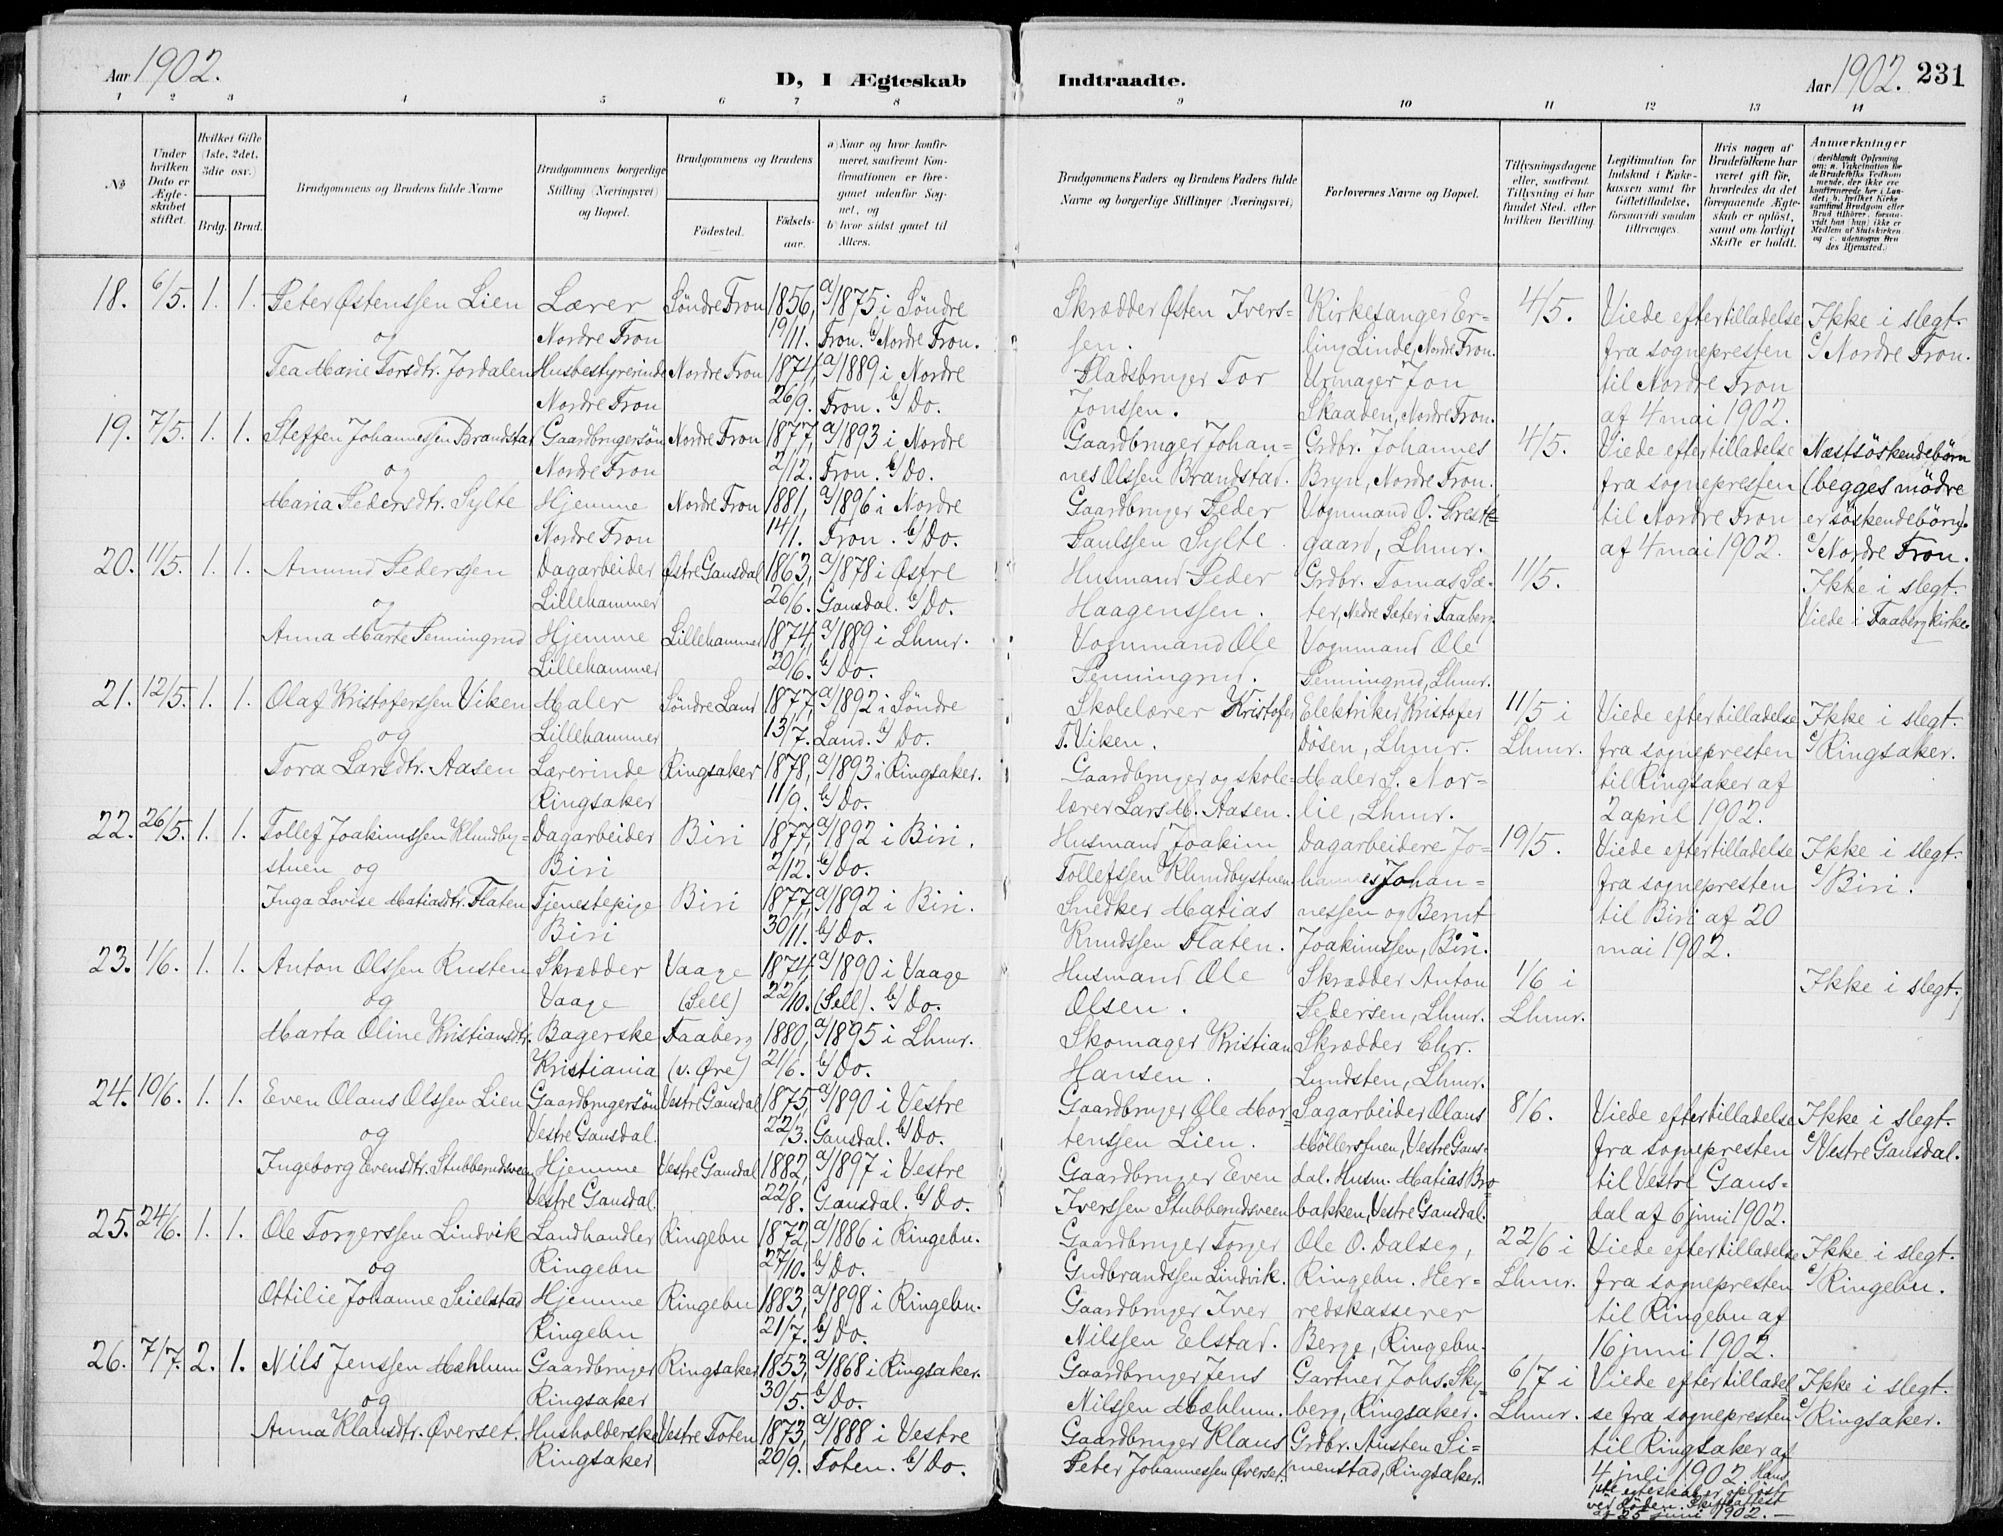 Aar 1902.
D, I Ægteskab Indtraadte.
Aar 1902. 231
1 2 3 4 5 6 7 8 9 10 11 12 13 14
No
Under hvilken Dato er Ægteskabet stiftet.
Hvilket Gifte (1ste, 2det, 3die osv.)
Brdg. Brud.
Brudgommens og Brudens fulde Navne
Brudgommens borgerlige Stilling (Næringsvei) og Bopæl.
Brudgommens og Brudens
Fødested. Fødselsaar.
a) Naar og hvor konfirmeret, saafremt Konfirmationen er foregaaet udenfor Sognet, og
b) hvor sidst gaaet til Alters.
Brudgommens Faders og Brudens Faders fulde Navne og borgerlige Stillinger (Næringsvei)
Forlovernes Navne og Bopæl.
Tillysningsdagene eller, saafremt Tillysning ei har fundet Sted, efter hvilken Bevilling
Legitimation for Indskud i Enkekassen samt for Giftetilladelse, forsaavidt saadan tiltrænges.
Hvis nogen af Brudefolkene har været gift før, hvorledes da det foregaaende Ægteskab er opløst, samt om lovligt Skifte er holdt.
Anmærkninger
18. 6/5. 1. 1. Peter Østenssen Lien Lærer Søndre Fron 1856, a/1875 i Søndre Skrædder Østen Ivers= Kirkesanger Er= 4/5. Viede efter tilladelse Ikke i slegt.
og Nordre Fron 19/11. Fron. b/Nordre Fron. sen. ling Linde, Nordre Fron. fra sognepresten c/Nordre Fron.
Tea Marie Torsdtr. Jordalen Husbestyrerinde Nordre Fron 1874, a/1889 i Nordre Pladsbruger Tor Urmager Jon til Nordre Fron
Nordre Fron 26/9. Fron. b/Do. Jonssen. Skaaden, Nordre Fron. af 4 mai 1902.
19. 7/5. 1. 1. Steffen Johannessen Brandstad Gaardbrugersøn Nordre Fron 1877, a/1893 i Nordre Gaardbruger Johan= Grdbr. Johannes 4/5. Viede efter tilladelse Næstsöskendebörn
og Nordre Fron 2/12. Fron. b/Do. nes Olssen Brandstad. Bryn, Nordre Fron. fra sognepresten (begges mødre
Maria Pedersdtr. Sylte Hjemme Nordre Fron 1881, a/1896 i Nordre Gaardbruger Peder Vognmand O. Preste= til Nordre Fron er söskendebörn).
Nordre Fron 14/1. Fron. b/Do. Paulssen Sylte. gaard, Lhmr. af 4 mai 1902. c/Nordre Fron.
20. 11/5. 1. 1. Amund Pederssen Dagarbeider Østre Gausdal 1863, a/1878 i Østre Husmand Peder Grdbr. Tomas Sæ= 11/5. Ikke i slegt.
og Lillehammer 26/6. Gausdal. b/Do. Haagenssen. ter, Nedre Sæter i Faaberg. Viede i Faaberg kirke.
Anna Marte Penningrud Hjemme Lillehammer 1874, a/1889 i Lhmr. Vognmand Ole Vognmand Ole
Lillehammer 20/6. b/Do. Penningrud. Penningrud, Lhmr.
21. 12/5. 1. 1. Olaf Kristoferssen Viken Maler Søndre Land 1877, a/1892 i Søndre Skolelærer Kristofer Elektriker Kristofer 11/5 i Viede efter tilladelse Ikke i slegt.
og Lillehammer 13/7. Land. b/Do. T. Viken. Døsen, Lhmr. Lhmr. fra sognepresten c/Ringsaker.
Tora Larsdtr. Aasen Lærerinde Ringsaker 1878, a/1893 i Ringsaker. Gaardbruger og skole= Maler S. Nor= til Ringsaker af
Ringsaker 11/9. b/Do. lærer Lars M. Aasen. lie, Lhmr. 2 april 1902.
22. 26/5. 1. 1. Tollef Joakimssen Klundby= Dagarbeider Biri 1877, a/1892 i Biri. Husmand Joakim Dagarbeidere Jo= 19/5. Viede efter tilladelse Ikke i slegt.
stuen og Biri 2/12. b/Do. Tollefssen Klundbystuen hannes Johan= fra sognepresten c/Biri.
Inga Lovise Matiasdtr. Flaten Tjenestepige Biri 1877, a/1892 i Biri. Snedker Matias nessen og Bernt til Biri af 20
Biri 30/11. b/Do. Knudssen Flaten. Joakimssen, Biri. mai 1902.
23. 1/6. 1. 1. Anton Olssen Rusten Skrædder Vaage 1874, a/1890 i Vaage Husmand Ole Skrædder Anton 1/6 i Ikke i slegt.
og Vaage (Sell) 22/10. (Sell). b/Do. Olsen. Pedersen, Lhmr. Lhmr.
Marta Oline Kristiansdtr. Bagerske Faaberg 1880, a/1895 i Lhmr. Skomager Kristian Skrædder Chr.
Kristiania (v. Øre) 2/6. b/Do. Hansen. Lundsten, Lhmr.
24. 10/6. 1. 1. Even Olaus Olssen Lien Gaardbrugersøn Vestre Gausdal 1875, a/1890 i Vestre Gaardbruger Ole Mor= Sagarbeider Olaus 8/6. Viede efter tilladelse Ikke i slegt.
og Vestre Gausdal. 22/3. Gausdal. b/Do. tenssen Lien. Møllerstuen, Vestre Gaus= fra sognepresten c/Vestre Gausdal.
Ingeborg Evensdtr. Stubberudsveen Hjemme Vestre Gausdal 1882, a/1897 i Vestre Gaardbruger Even dal. Husm. Matias Bro= til Vestre Gaus=
Vestre Gausdal. 22/8. Gausdal. b/Do. Iverssen Stubberudsveen bakken, Vestre Gausdal. dal af 6 juni 1902.
25. 24/6. 1. 1. Ole Torgerssen Lindvik Landhandler Ringebu 1872, a/1886 i Ringebu. Gaardbruger Torger Ole O. Dalseg, 22/6 i Viede efter tilladelse Ikke i slegt.
og Ringebu 27/10. b/Do. Gudbrandssen Lindvik. Ringebu. Her= Lhmr. fra sognepresten c/Ringebu.
Ottilie Johanne Seielstad Hjemme Ringebu 1883, a/1898 i Ringebu. Gaardbruger Iver redskasserer til Ringebu af
Ringebu 21/7. b/Do. Nilssen Elstad. Berge, Ringebu. 16 juni 1902.
26. 7/7. 2. 1. Nils Jenssen Mæhlum Gaardbruger Ringsaker 1853, a/1868 i Ringsaker. Gaardbruger Jens Gartner Johs. Sky= 6/7 i Viede efter tilladel= Ikke i slegt.
og Ringsaker 30/5. b/Do. Nilssen Mæhlum. berg, Ringsaker. Lhmr. se fra sognepresten c/Ringsaker.
Anna Klausdtr. Øverset. Husholderske Vestre Toten 1873, a/1888 i Vestre Gaardbruger Klaus Grdbr. Austen Si= til Ringsaker af
Ringsaker 20/9. Toten. b/Do. Peter Johannessen Øverset. menstad, Ringsaker. 4 juli 1902. Hans
1ste egteskab er opløst
ved døden. Skifteattest
af 25 juni 1902.—